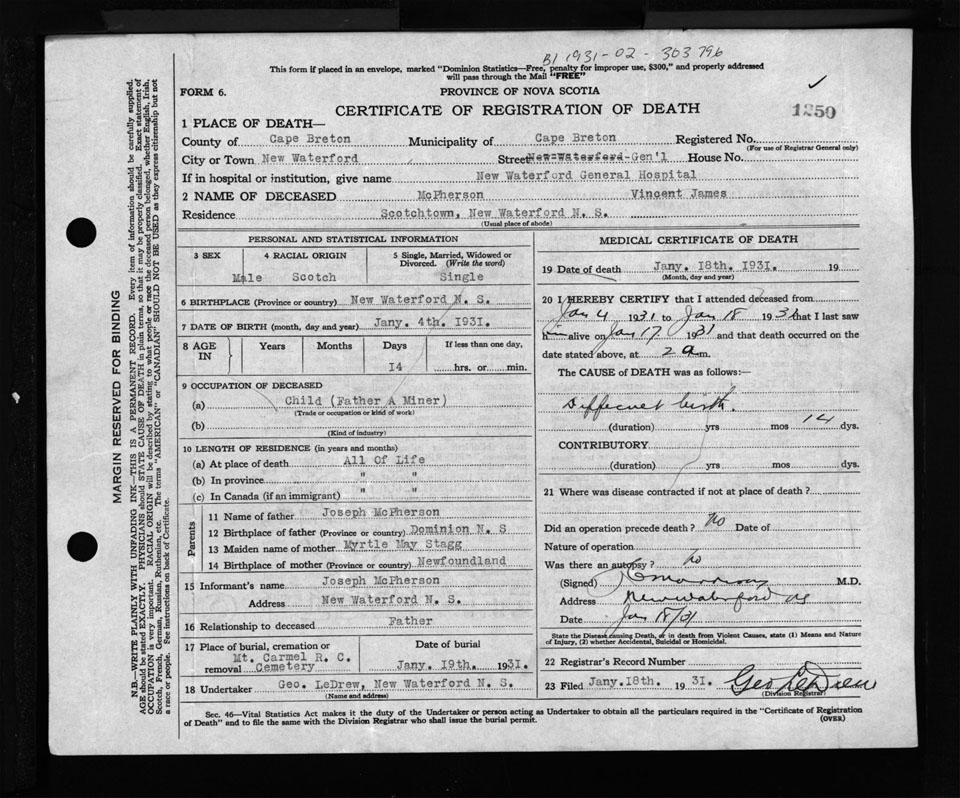 B1 1931-02-303796
This form if placed in an envelope, marked "Dominion Statistics—Free, penalty for improper use, $300," and properly addressed
will pass through the Mail "FREE"
FORM 6.
PROVINCE OF NOVA SCOTIA
CERTIFICATE OF REGISTRATION OF DEATH
1250
1 PLACE OF DEATH—
County of Cape Breton Municipality of Cape Breton Registered No.
(For use of Registrar General only)
City or Town New Waterford Street New Waterford Gen'l House No.
If in hospital or institution, give name New Waterford General Hospital
2 NAME OF DECEASED McPherson Vincent James
Residence Scotchtown, New Waterford N. S.
(Usual place of abode)
PERSONAL AND STATISTICAL INFORMATION
3 SEX 4 RACIAL ORIGIN 5 Single, Married, Widowed or
Divorced. (Write the word)
Male Scotch Single
6 BIRTHPLACE (Province or country) New Waterford N. S.
7 DATE OF BIRTH (month, day and year) Jany. 4th. 1931.
8 AGE IN Years Months Days If less than one day,
14 hrs. or min.
9 OCCUPATION OF DECEASED
(a) Child (Father A Miner)
(Trade or occupation or kind of work)
(b)
(Kind of industry)
10 LENGTH OF RESIDENCE (in years and months)
(a) At place of death All Of Life
(b) In province " "
(c) In Canada (if an immigrant) " "
Parents
11 Name of father Joseph McPherson
12 Birthplace of father (Province or country) Dominion N. S
13 Maiden name of mother Myrtle May Stagg
14 Birthplace of mother (Province or country) Newfoundland
15 Informant's name Joseph McPherson
Address New Waterford N. S.
16 Relationship to deceased Father
17 Place of burial, cremation or removal Mt. Carmel R. C. Cemetery
Date of burial Jany. 19th. 1931.
18 Undertaker Geo. LeDrew, New Waterford N. S.
(Name and address)
MEDICAL CERTIFICATE OF DEATH
19 Date of death Jany. 18th. 1931. 19
(Month, day and year)
20 I HEREBY CERTIFY that I attended deceased from
Jan 4 1931 to Jan 18 1931 that I last saw
him alive on Jan 17 1931 and that death occurred on the
date stated above, at 2 a m.
The CAUSE of DEATH was as follows:—
birth.
(duration) yrs mos 14 dys.
CONTRIBUTORY
(duration) yrs mos dys.
21 Where was disease contracted if not at place of death?
Did an operation precede death? No Date of
Nature of operation
Was there an autopsy? No
(Signed) M.D.
Address New Waterford NS
Date Jan 18/31
State the Disease causing Death, or in death from Violent Causes, state (1) Means and Nature
of Injury, (2) whether Accidental, Suicidal or Homicidal.
22 Registrar's Record Number
23 Filed Jany. 18th. 1931. Geo LeDrew
(Division Registrar)
Sec. 46—Vital Statistics Act makes it the duty of the Undertaker or person acting as Undertaker to obtain all the particulars required in the "Certificate of Registration
of Death" and to file the same with the Division Registrar who shall issue the burial permit.
(OVER)
MARGIN RESERVED FOR BINDING
N.B.—WRITE PLAINLY WITH UNFADING INK—THIS IS A PERMANENT RECORD. Every item of information should be carefully supplied.
AGE should be stated EXACTLY. PHYSICIANS should STATE CAUSE OF DEATH in plain terms, so that it may be properly classified. Exact statement of
OCCUPATION is very important. RACIAL ORIGIN will be described by stating to what people or race the deceased person belonged, whether English, Irish,
Scotch, French, German, Russian, Ruthenian, etc. The terms "AMERICAN" or "CANADIAN" SHOULD NOT BE USED as they express citizenship but not
a race or people. See instructions on back of Certificate.